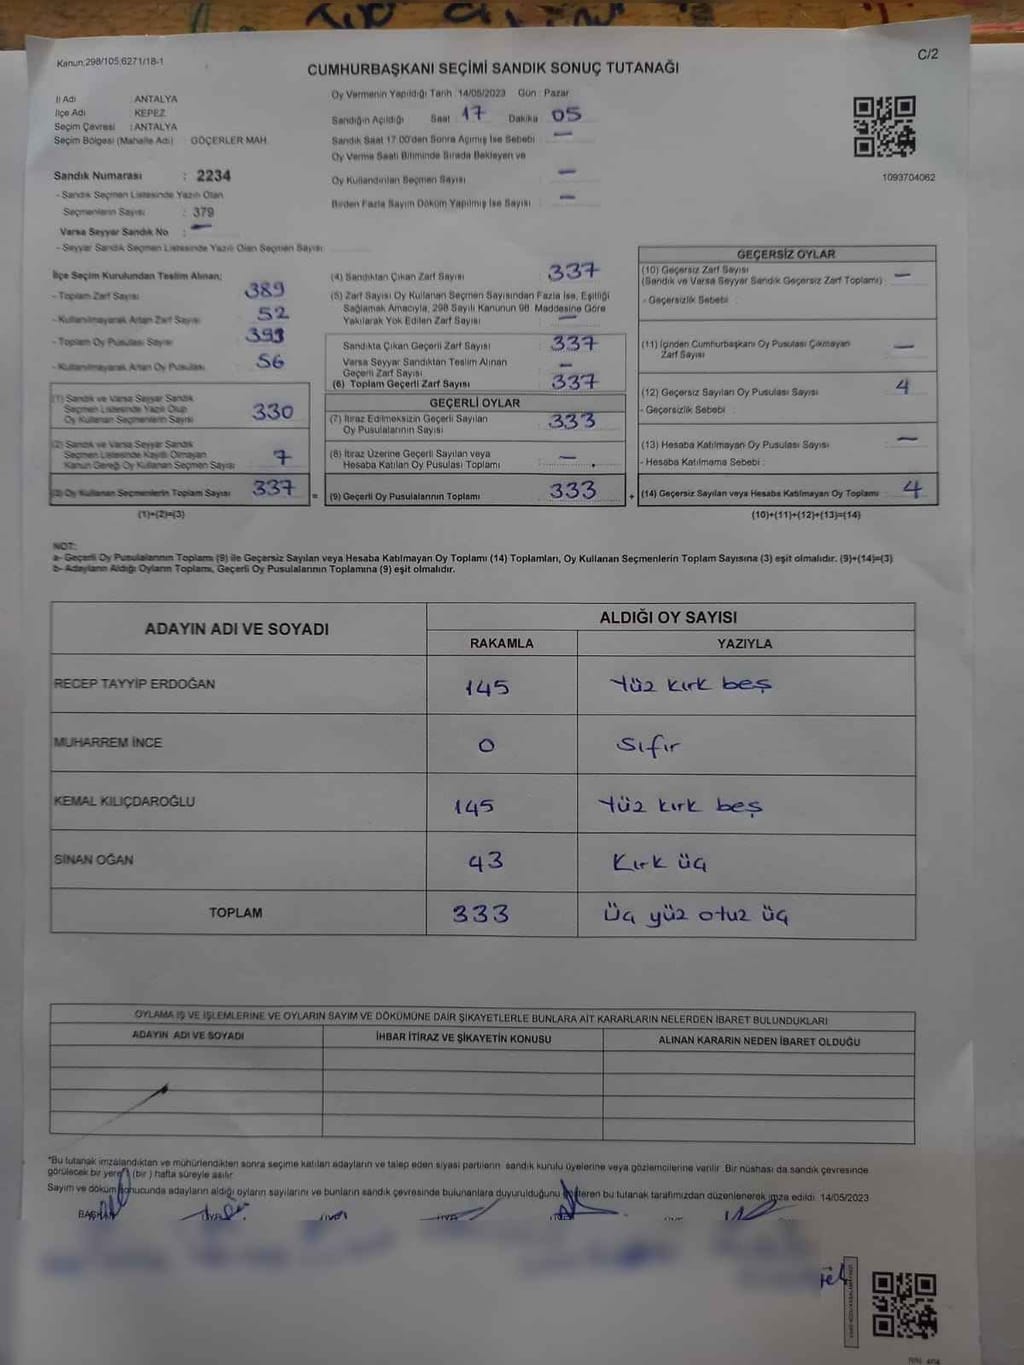 Kanun:298/105,6271/18-1
C/2
CUMHURBAŞKANI SEÇİMİ SANDIK SONUÇ TUTANAĞI
İl Adı : ANTALYA
İlçe Adı : KEPEZ
Seçim Çevresi : ANTALYA
Seçim Bölgesi (Mahalle Adı) GÖÇERLER MAH.
Sandık Numarası : 2234
- Sandık Seçmen Listesinde Yazılı Olan
Seçmenlerin Sayısı : 379
Varsa Seyyar Sandık No : —
- Seyyar Sandık Seçmen Listesinde Yazılı Olan Seçmen Sayısı
Oy Vermenin Yapıldığı Tarih :14/05/2023 Gün : Pazar
Sandığın Açıldığı Saat 17 Dakika 05
Sandık Saat 17:00'den Sonra Açılmış İse Sebebi —
Oy Verme Saati Bitiminde Sırada Bekleyen ve
Oy Kullandırılan Seçmen Sayısı —
Birden Fazla Sayım Döküm Yapılmış İse Sayısı —
1093704062
İlçe Seçim Kurulundan Teslim Alınan:
- Toplam Zarf Sayısı 389
- Kullanılmayarak Artan Zarf Sayısı 52
- Toplam Oy Pusulası Sayısı 393
- Kullanılmayarak Artan Oy Pusulası 56
(1) Sandık ve Varsa Seyyar Sandık
Seçmen Listesinde Yazılı Olup
Oy Kullanan Seçmenlerin Sayısı 330
(2) Sandık ve Varsa Seyyar Sandık
Seçmen Listesinde Kayıtlı Olmayan
Kanun Gereği Oy Kullanan Seçmen Sayısı 7
(3) Oy Kullanan Seçmenlerin Toplam Sayısı 337 =
(1)+(2)=(3)
(4) Sandıktan Çıkan Zarf Sayısı 337
(5) Zarf Sayısı Oy Kullanan Seçmen Sayısından Fazla İse, Eşitliği
Sağlamak Amacıyla, 298 Sayılı Kanunun 98. Maddesine Göre
Yakılarak Yok Edilen Zarf Sayısı —
Sandıkta Çıkan Geçerli Zarf Sayısı 337
Varsa Seyyar Sandıktan Teslim Alınan
Geçerli Zarf Sayısı —
(6) Toplam Geçerli Zarf Sayısı 337
GEÇERLİ OYLAR
(7) İtiraz Edilmeksizin Geçerli Sayılan
Oy Pusulalarının Sayısı 333
(8) İtiraz Üzerine Geçerli Sayılan veya
Hesaba Katılan Oy Pusulası Toplamı —
(9) Geçerli Oy Pusulalarının Toplamı 333 +
GEÇERSİZ OYLAR
(10) Geçersiz Zarf Sayısı
(Sandık ve Varsa Seyyar Sandık Geçersiz Zarf Toplamı) —
- Geçersizlik Sebebi :
(11) İçinden Cumhurbaşkanı Oy Pusulası Çıkmayan
Zarf Sayısı —
(12) Geçersiz Sayılan Oy Pusulası Sayısı 4
- Geçersizlik Sebebi :
(13) Hesaba Katılmayan Oy Pusulası Sayısı —
- Hesaba Katılmama Sebebi :
(14) Geçersiz Sayılan veya Hesaba Katılmayan Oy Toplamı 4
(10)+(11)+(12)+(13)=(14)
NOT:
a- Geçerli Oy Pusulalarının Toplamı (9) ile Geçersiz Sayılan veya Hesaba Katılmayan Oy Toplamı (14) Toplamları, Oy Kullanan Seçmenlerin Toplam Sayısına (3) eşit olmalıdır. (9)+(14)=(3)
b- Adayların Aldığı Oyların Toplamı, Geçerli Oy Pusulalarının Toplamına (9) eşit olmalıdır.
ADAYIN ADI VE SOYADI ALDIĞI OY SAYISI
RAKAMLA YAZIYLA
RECEP TAYYİP ERDOĞAN 145 Yüz kırk beş
MUHARREM İNCE 0 Sıfır
KEMAL KILIÇDAROĞLU 145 Yüz kırk beş
SİNAN OĞAN 43 Kırk üç
TOPLAM 333 Üç yüz otuz üç
OYLAMA İŞ VE İŞLEMLERİNE VE OYLARIN SAYIM VE DÖKÜMÜNE DAİR ŞİKAYETLERLE BUNLARA AİT KARARLARIN NELERDEN İBARET BULUNDUKLARI
ADAYIN ADI VE SOYADI İHBAR İTİRAZ VE ŞİKAYETİN KONUSU ALINAN KARARIN NEDEN İBARET OLDUĞU
*Bu tutanak imzalandıktan ve mühürlendikten sonra seçime katılan adayların ve talep eden siyasi partilerin sandık kurulu üyelerine veya gözlemcilerine verilir. Bir nüshası da sandık çevresinde
görülecek bir yere (bir) hafta süreyle asılır.
Sayım ve döküm sonucunda adayların aldığı oyların sayılarını ve bunların sandık çevresinde bulunanlara duyurulduğunu gösteren bu tutanak tarafımızdan düzenlenerek imza edildi. 14/05/2023
BAŞKAN